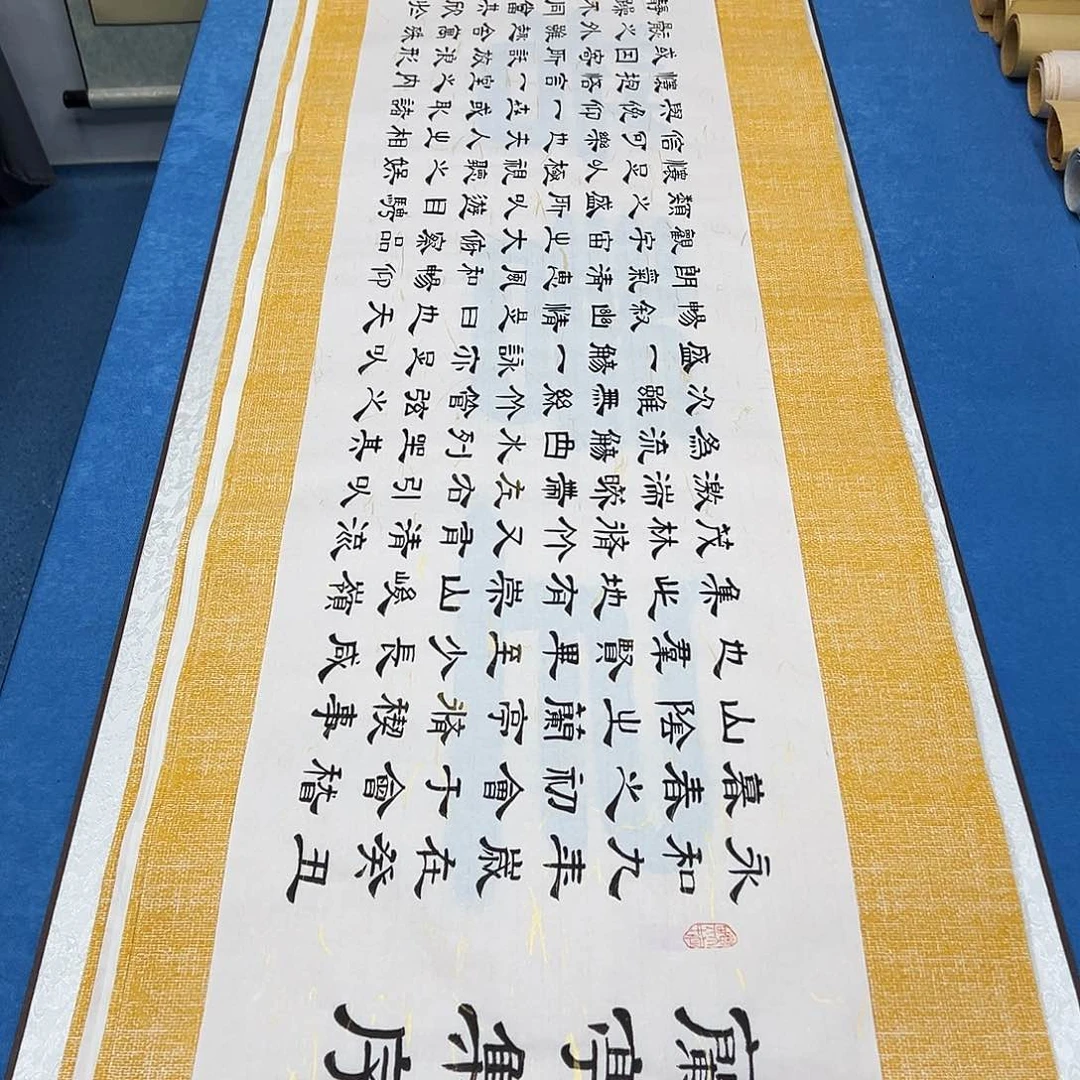 蘭亭集序
永和九年歲在癸丑
暮春之初會于會稽
山陰之蘭亭脩禊事
也羣賢畢至少長咸
集此地有崇山峻嶺
茂林脩竹又有清流
激湍暎帶左右引以
為流觴曲水列坐其
次雖無絲竹管弦之
盛一觴一詠亦足以
暢叙幽情是日也天
朗氣清惠風和暢仰
觀宇宙之大俯察品
類之盛所以遊目騁
懷足以極視聽之娛
信可樂也夫人之相
與俯仰一世或取諸
懷抱悟言一室之內
或因寄所託放浪形
骸之外雖趣舍萬殊
靜躁不同當其欣於